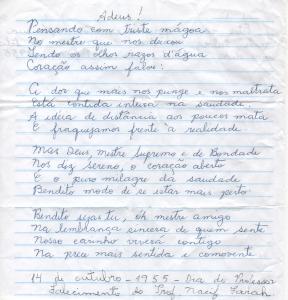 Adeus!
Pensando com triste mágoa
No mestre que nos deixou
Tendo os olhos rasos d'água
Coração assim falou:
A dor que mais nos punge e nos maltrata
Está contida inteira na saudade.
A idéia de distância aos poucos mata
E fraquejamos frente à realidade
Mas Deus, mestre Supremo e de Bondade
Nos diz sereno, o coração aberto
É o puro milagre da saudade
Bendito modo de se estar mais perto
Bendito sejas tu, oh mestre amigo
Na lembrança sincera de quem sente
Nosso carinho viverá contigo
Na prece mais sentida e comovente
14 de outubro - 1955 - Dia do Professor
Falecimento do Prof. Nacif Farah